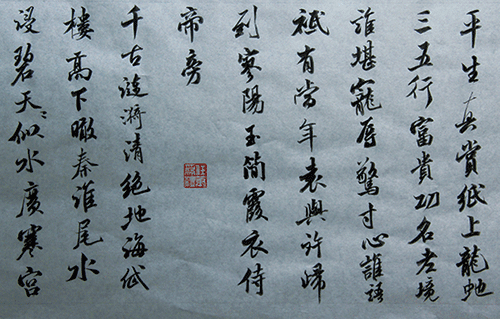 平生真賞紙上龍虵
三五行富貴功名老境
誰堪寵辱驚寸心誰語
祗有當年袁與許歸
到寥陽玉簡霞衣侍
帝旁
千古漣漪清絕地海岱
樓高下瞰秦淮尾水
浸碧天〻似水廣寒宮